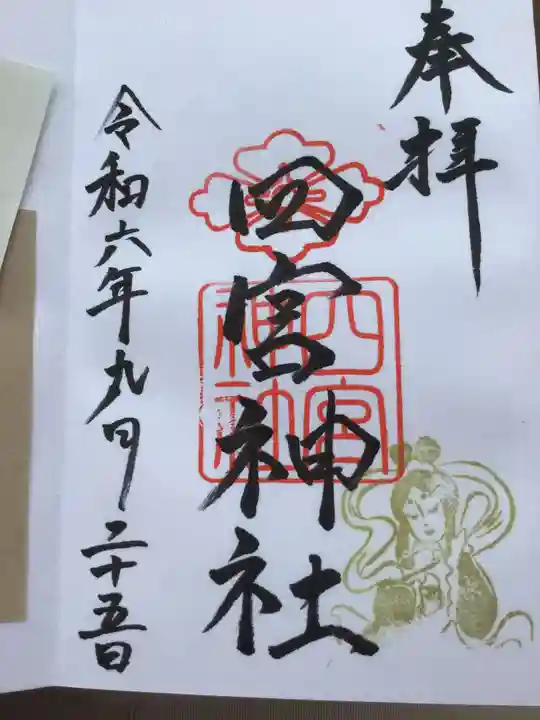 奉拝
四宮神社
四宮
神社
令和六年九月二十五日